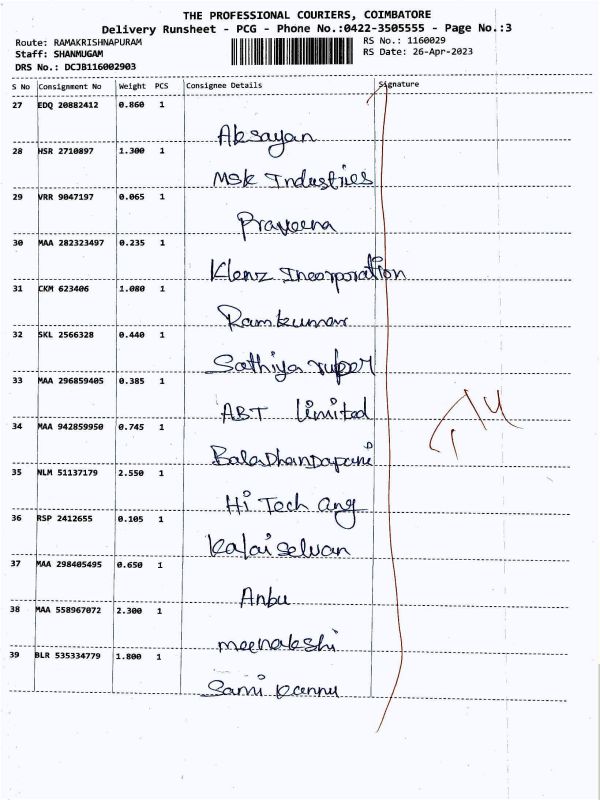 THE PROFESSIONAL COURIERS, COIMBATORE
Delivery Runsheet - PCG - Phone No.:0422-3505555 - Page No.:3
Route: RAMAKRISHNAPURAM
Staff: SHANMUGAM
DRS No.: DCJB116002903
RS No.: 1160029
RS Date: 26-Apr-2023
S No Consignment No Weight PCS Consignee Details Signature
27 EDQ 20882412 0.860 1
Aksayan
28 HSR 2710897 1.300 1
MSK Industries
29 VRR 9047197 0.065 1
Praveena
30 MAA 282323497 0.235 1
Klenz Incorporation
31 CKM 623406 1.080 1
Ramkumar
32 SKL 2566328 0.440 1
Sathiya
33 MAA 296859405 0.385 1
ABT Limited
34 MAA 942859950 0.745 1
BalaDhanDapani
35 NLM 51137179 2.550 1
Hi Tech
36 RSP 2412655 0.105 1
Kalaiselvan
37 MAA 298405495 0.650 1
Anbu
38 MAA 558967072 2.300 1
meenakshi
39 BLR 535334779 1.800 1
Sami Kannu